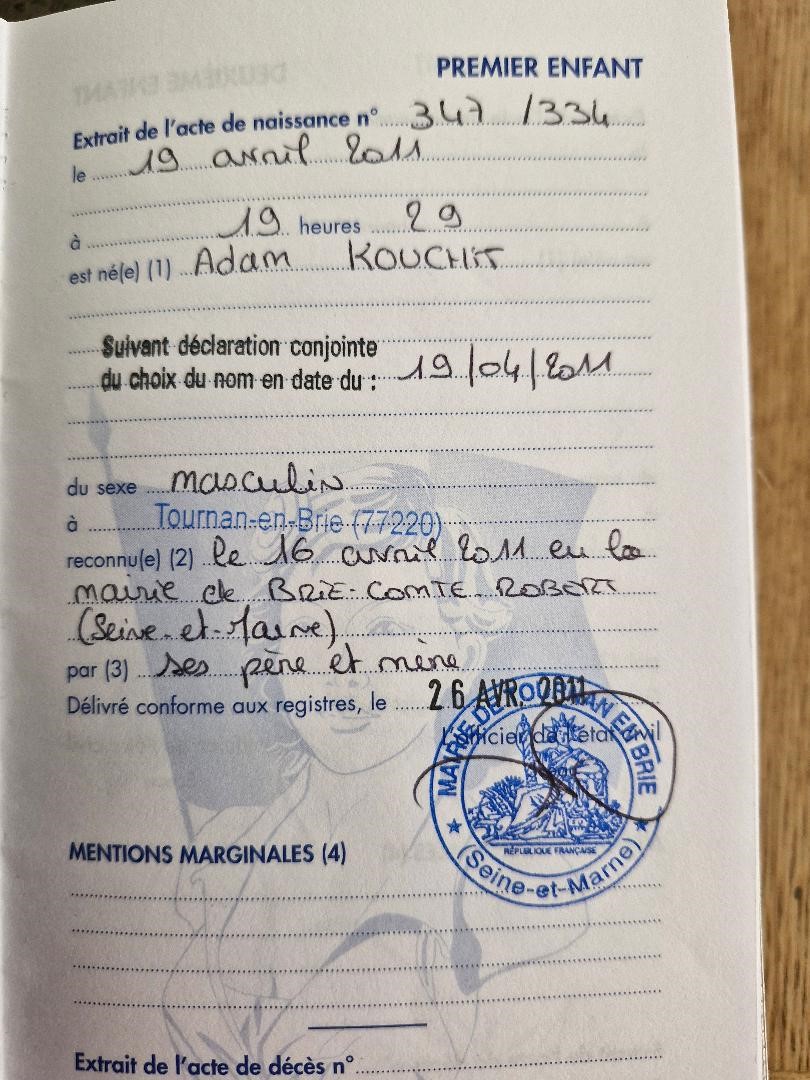 PREMIER ENFANT
Extrait de l'acte de naissance n° 347 / 334
le 19 avril 2011
à 19 heures 29
est né(e) (1) Adam KOUCHIT
Suivant déclaration conjointe
du choix du nom en date du : 19/04/2011
du sexe masculin
à Tournan-en-Brie (77220)
reconnu(e) (2) le 16 avril 2011 en la
mairie de BRIE-COMTE-ROBERT
(Seine-et-Marne)
par (3) ses père et mère
Délivré conforme aux registres, le 26 AVR. 2011
L'officier de l'état civil
MAIRIE DE TOURNAN EN BRIE
RÉPUBLIQUE FRANÇAISE
(Seine-et-Marne)
MENTIONS MARGINALES (4)
Extrait de l'acte de décès n°